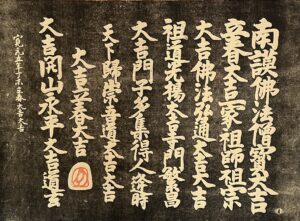 南謨佛法僧寶大吉
立春大吉一家祖師祖宗
大吉佛法弘通大吉大吉
祖道光揚大吉寺門繁昌
大吉門子多集得人逢時
天下歸崇吾道大吉大吉
大吉立春大吉
大吉岡山永平大吉道玄
寛元五年丁未立春大吉大吉